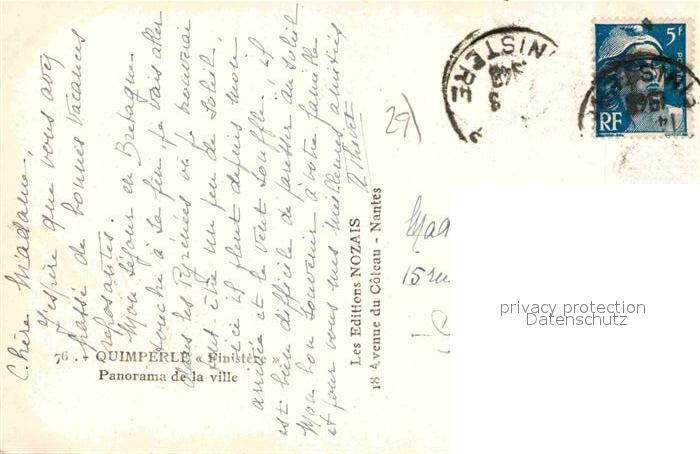 Chère Madame,
J'espère que vous avez
passé de bonnes vacances
reposantes.
Mon séjour en Bretagne
touche à sa fin, je vais aller
dans les Pyrénées où je trouverai
peut être un peu de soleil,
ici il pleut depuis mon
arrivée et le vent souffle, il
est bien difficile de parler du soleil
Mon bon souvenir à votre famille
et pour vous mes meilleures amitiés
76. - QUIMPERLÉ « Finistère »
Panorama de la ville
Les Editions NOZAIS
18 Avenue du Côteau - Nantes
29)
FINISTERE
5F
RF
FINISTERE
14
Mad
15 rue
privacy protection
Datenschutz